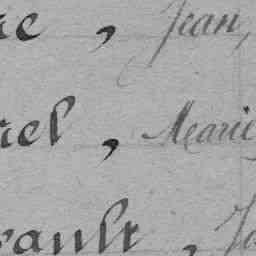 re, Jean,
rel, Marie
rault, Ja